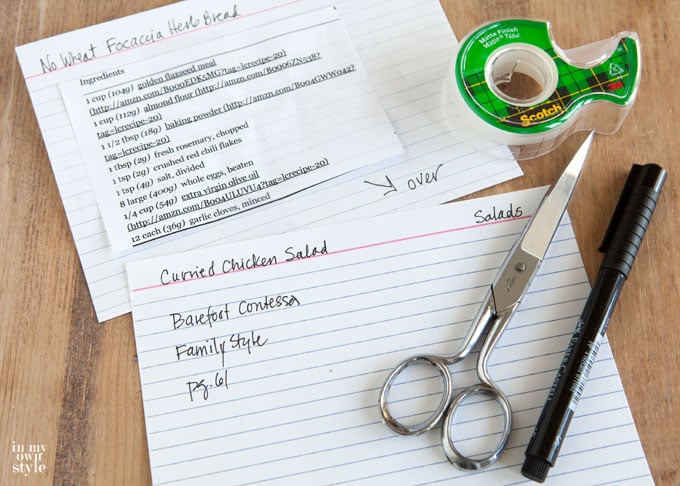 No Wheat Focaccia Herb Bread
Ingredients
1 cup (104g) golden flaxseed meal
(http://amzn.com/B000EDK5MG?tag=lcrecipe-20)
1 cup (112g) almond flour (http://amzn.com/B0006ZN538?
tag=lcrecipe-20)
1 1/2 tbsp (18g) baking powder (http://amzn.com/B004GWW042?
tag=lcrecipe-20)
1 tbsp (2g) fresh rosemary, chopped
1 tsp (2g) crushed red chili flakes
1 tsp (4g) salt, divided
8 large (400g) whole eggs, beaten
1/4 cup (54g) extra virgin olive oil
(http://amzn.com/B004ULUVU4?tag=lcrecipe-20)
12 each (36g) garlic cloves, minced
over
Matte Finish
Magic™ Tape
Scotch
3M
Salads
Curried Chicken Salad
Barefoot Contessa
Family Style
pg. 61
in my
own
style